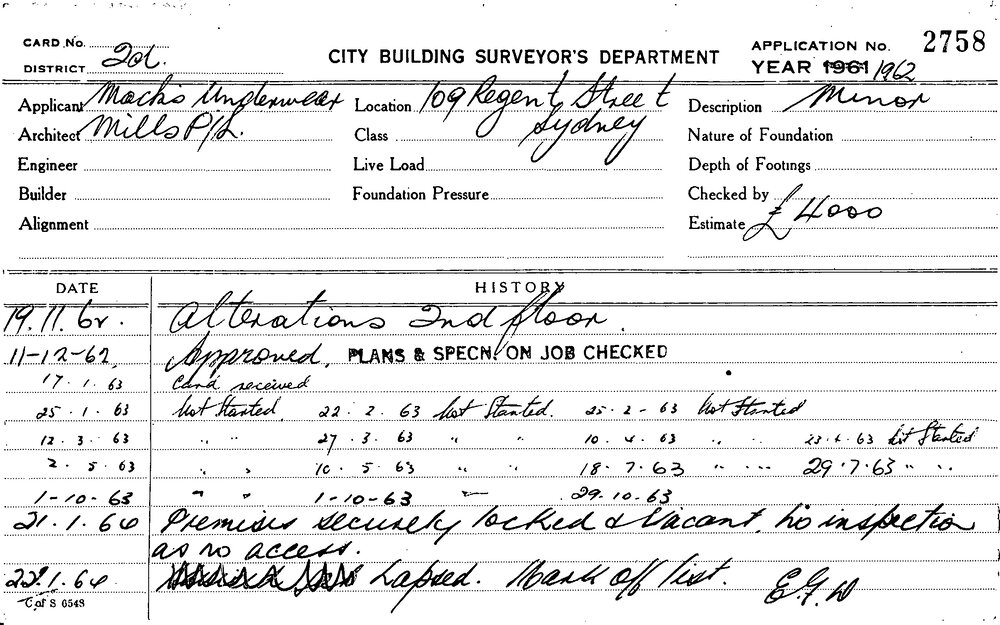 CARD No. 2d. CITY BUILDING SURVEYOR'S DEPARTMENT APPLICATION No. 2758
DISTRICT YEAR 1961 1962
Applicant Macks Underwear Location 109 Regent Street Description Minor
Architect Mills P/L. Class Sydney Nature of Foundation
Engineer Live Load Depth of Footings
Builder Foundation Pressure Checked by
Alignment Estimate £ 4000
DATE HISTORY
19.11.62. Alterations 2nd floor.
11-12-62, Approved. PLANS & SPECN. ON JOB CHECKED
17.1.63 Card received
25.1.63 Not Started. 22.2.63 Not Started. 25-2-63 Not Started
12.3.63 " " 27.3.63 " " 10.4.63 " " 23.4.63 Not Started
2.5.63 " " 10.5.63 " " 18.7.63 " " 29.7.63 " "
1-10-63 " " 1-10-63 " 29.10.63
21.1.64 Premises securely locked & Vacant, no inspection
as no access.
22.1.64 Lapsed. Mark off list. E.G.W
C of S 0548